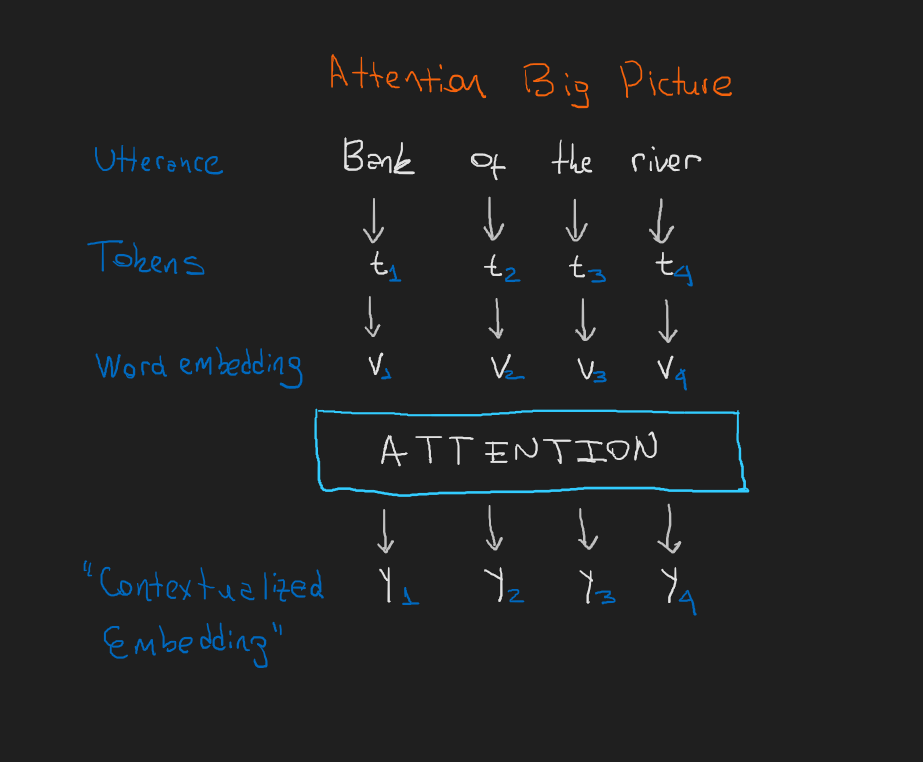 Attention Big Picture
Utterance Bank of the river
Tokens t1 t2 t3 t4
Word embedding v1 v2 v3 v4
ATTENTION
"Contextualized y1 y2 y3 y4
Embedding"